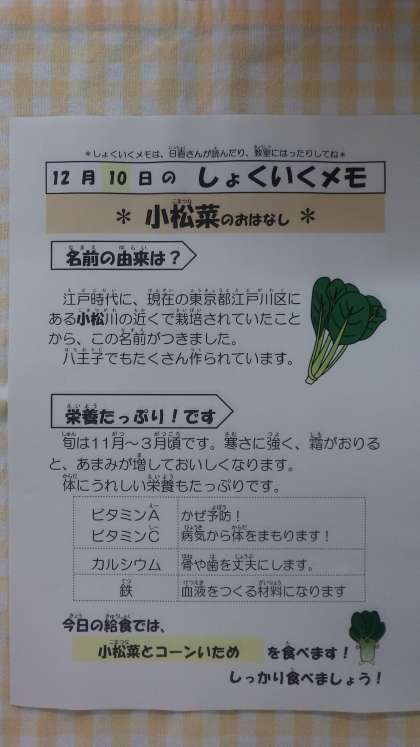 ＊しょくいくメモは、日直さんが読んだり、教室にはったりしてね＊
12月10日の しょくいくメモ
＊ 小松菜のおはなし ＊
名前の由来は？
江戸時代に、現在の東京都江戸川区に
ある小松川の近くで栽培されていたこと
から、この名前がつきました。
八王子でもたくさん作られています。
栄養たっぷり！です
旬は11月～3月頃です。寒さに強く、霜がおりる
と、あまみが増しておいしくなります。
体にうれしい栄養もたっぷりです。
ビタミンA かぜ予防！
ビタミンC 病気から体をまもります！
カルシウム 骨や歯を丈夫にします。
鉄 血液をつくる材料になります
今日の給食では、
小松菜とコーンいため を食べます！
しっかり食べましょう！